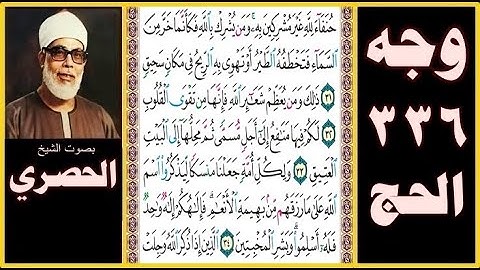 حُنَفَاءَ لِلَّهِ غَيْرَ مُشْرِكِينَ بِهِ وَمَن يُشْرِكْ بِاللَّهِ فَكَأَنَّمَا خَرَّ مِنَ
السَّمَاءِ فَتَخْطَفُهُ الطَّيْرُ أَوْ تَهْوِي بِهِ الرِّيحُ فِي مَكَانٍ سَحِيقٍ
٣١ ذَٰلِكَ وَمَن يُعَظِّمْ شَعَائِرَ اللَّهِ فَإِنَّهَا مِن تَقْوَى الْقُلُوبِ
٣٢ لَكُمْ فِيهَا مَنَافِعُ إِلَىٰ أَجَلٍ مُّسَمًّى ثُمَّ مَحِلُّهَا إِلَى الْبَيْتِ
الْعَتِيقِ ٣٣ وَلِكُلِّ أُمَّةٍ جَعَلْنَا مَنسَكًا لِّيَذْكُرُوا اسْمَ
اللَّهِ عَلَىٰ مَا رَزَقَهُم مِّن بَهِيمَةِ الْأَنْعَامِ فَإِلَٰهُكُمْ إِلَٰهٌ وَاحِدٌ
فَلَهُ أَسْلِمُوا وَبَشِّرِ الْمُخْبِتِينَ ٣٤ الَّذِينَ إِذَا ذُكِرَ اللَّهُ وَجِلَتْ
وجه
٣٣٦
الحج
بصوت الشيخ
الحصري